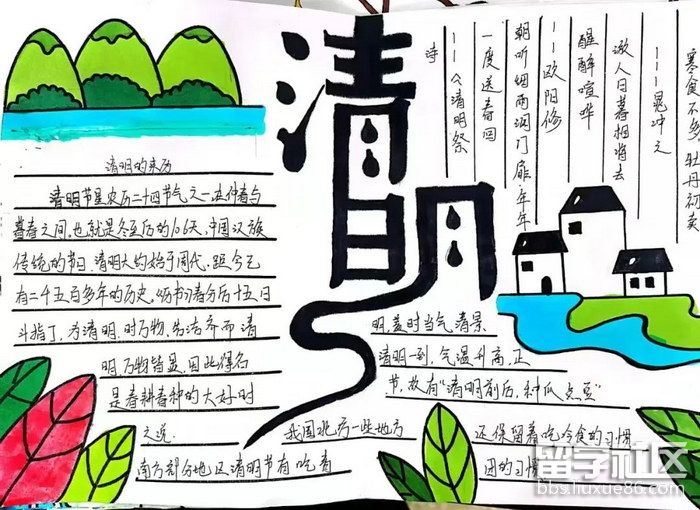 清明
清明的来历
清明节是农历二十四节气之一在仲春与
暮春之间,也就是冬至后的106天,中国汉族
传统的节日.清明大约始于周代.距今已
有二千五百多年的历史,历书:春分后十五日
斗指丁,为清明.时万物,生洁齐而清
明万物皆显,因此得名
是春耕春种的大好时
之说.
南方部分地区清明节有吃青
明,盖时当气清景
清明一到,气温升高,正
节,故有"清明前后,种瓜点豆"
我国北方一些地方
还保留着吃冷食的习惯
团的习惯
寒食不多,牡丹初卖
——晁冲之
游人日暮相将去
醒醉喧哗
——欧阳修
朝听烟雨洞门扉年年
一度送春回
——《清明祭
诗
留学社区
bbs.liuxue86.com